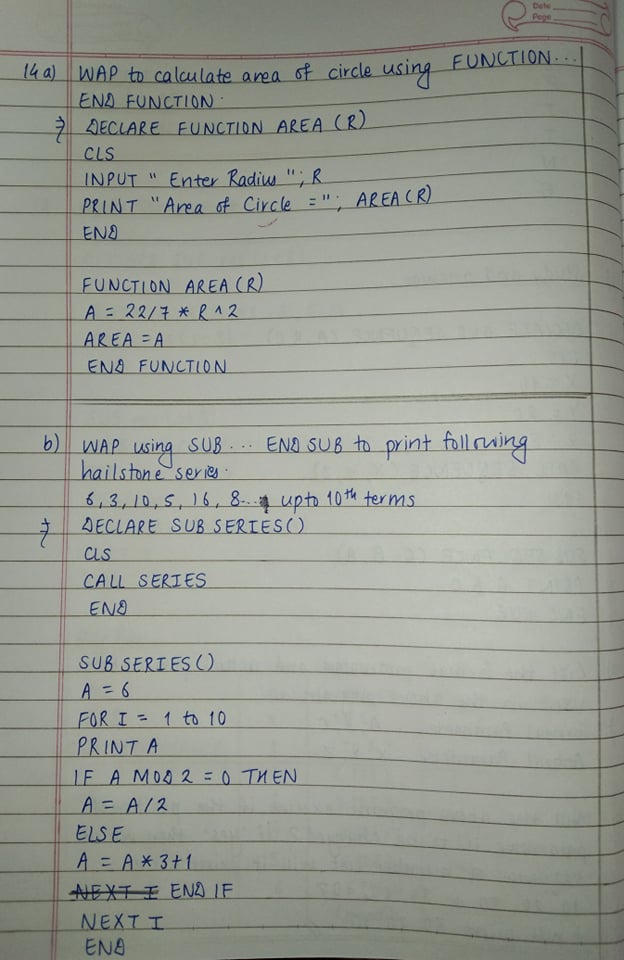 Date
Page
14 a) WAP to calculate area of circle using FUNCTION...
END FUNCTION.
⇒ DECLARE FUNCTION AREA (R)
CLS
INPUT " Enter Radius "; R
PRINT "Area of Circle ="; AREA(R)
END
FUNCTION AREA (R)
A = 22/7 * R ^ 2
AREA = A
END FUNCTION
b) WAP using SUB... END SUB to print following
hailstone series.
6, 3, 10, 5, 16, 8... upto 10th terms
⇒ DECLARE SUB SERIES()
CLS
CALL SERIES
END
SUB SERIES()
A = 6
FOR I = 1 to 10
PRINT A
IF A MOD 2 = 0 THEN
A = A/2
ELSE
A = A * 3+1
NEXT I END IF
NEXT I
END